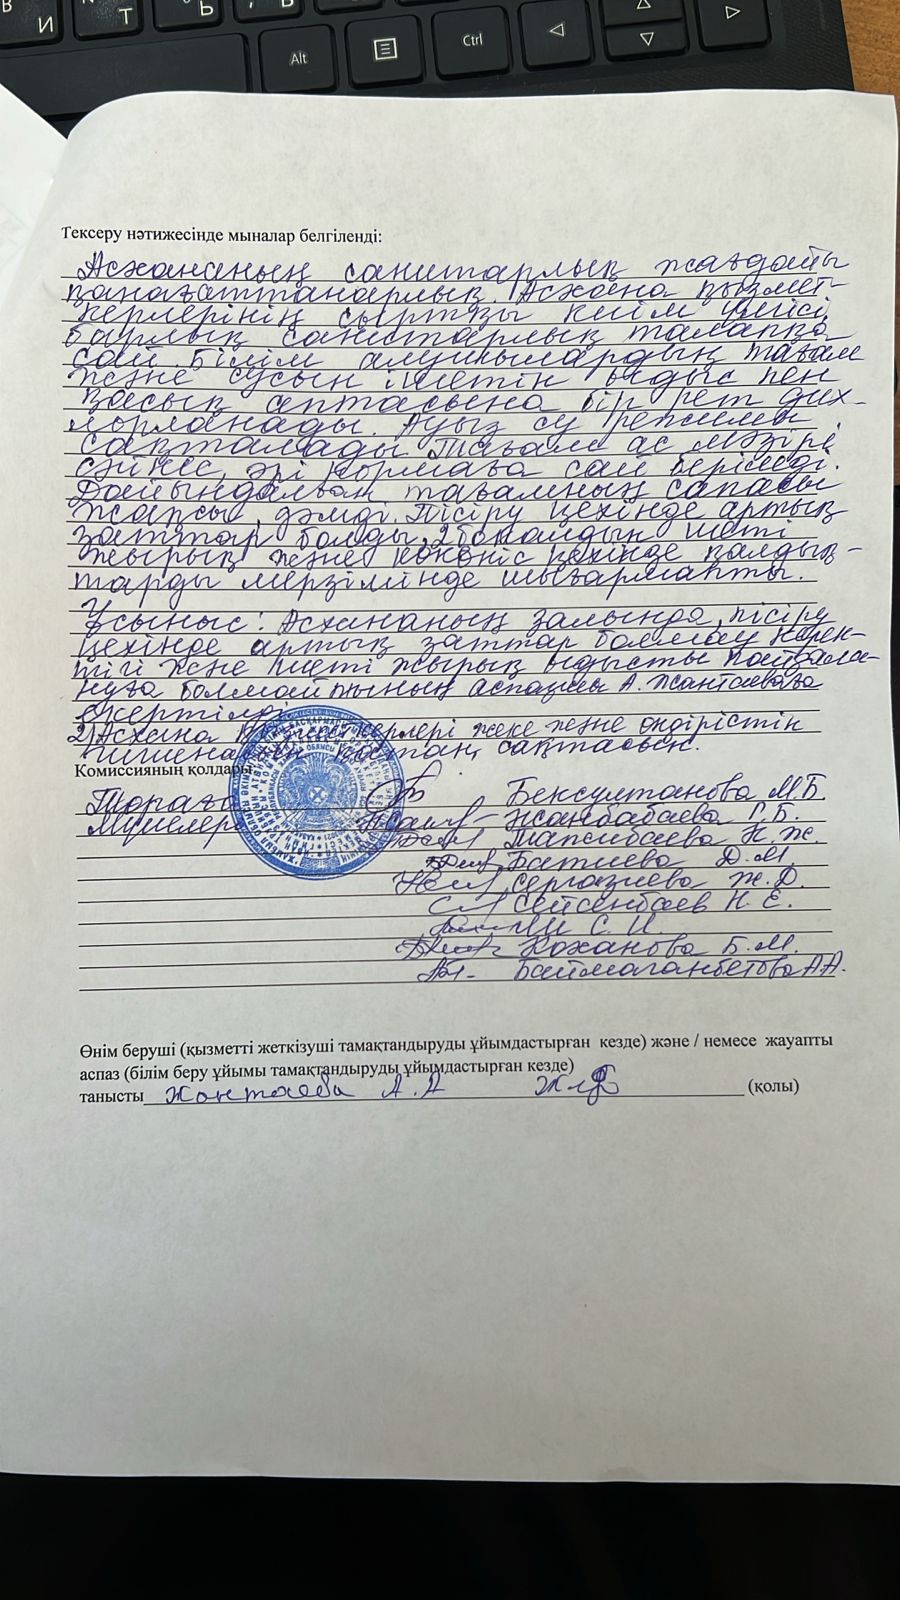 И
Т
Р
Ь
Alt
Ctrl
Тексеру нәтижесінде мыналар белгіленді:
Асхананың санитарлық жағдайы
қанағаттанарлық. Асхана қызмет-
керлерінің сыртқы киім үлгісі
барлық санитарлық талапқа
сай. Білім алушылардың тағам
және сусын ішетін ыдыс пен
қасық аптасына бір рет дих-
лорланады. Ауыз су режимы
сақталады. Тағам ас мәзірі
сәйкес, әрі нормаға сай беріледі.
Дайындалған тағамның сапасы
жақсы, дәмді. Пісіру цехінде артық
заттар болды, 2 бокалдың шеті
жырық және көкөніс цехінде қалдық-
тарды мерзімінде шығармапты.
Ұсыныс: Асхананың залында, пісіру
цехінде артық заттар болмау керек-
тігі және шеті жырық ыдысты пайдала-
нуға болмайтының аспазшы А. Жантаеваға
ескертілді
2) Асхана қызметкерлері жеке және өндірістік
гигиенаны сақтасын.
Комиссияның қолдары
Төраға Бексултанова М.Б.
Мүшелері Жанбабаева Г.Б.
Тажибаева К.Ж.
Батиева Д.М.
Сергазиева Ж.Д.
Сейсенбаев Н.Е.
Ли С.И.
Кожанова Б.М.
Баймаганбетова А.А.
Өнім беруші (қызметті жеткізуші тамақтандыруды ұйымдастырған кезде) және / немесе жауапты
аспаз (білім беру ұйымы тамақтандыруды ұйымдастырған кезде)
танысты Жантаева А.А (қолы)